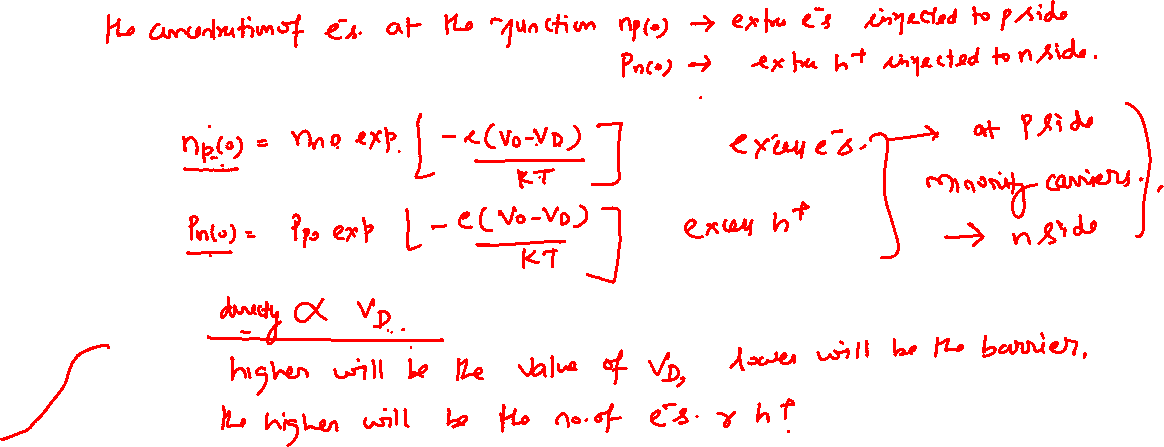 the concentration of e⁻s. at the junction np(0) → extra e⁻s injected to p side
Pn(0) → extra h⁺ injected to n side.
np(0) = nno exp. [ -e(V0-VD) / KT ] excess e⁻s. → at P side
minority carriers.
Pn(0) = Ppo exp [ -e(V0-VD) / KT ] excess h⁺ → n side
directly ∝ VD..
higher will be the value of VD, lower will be the barrier,
the higher will be the no. of e⁻s. & h⁺